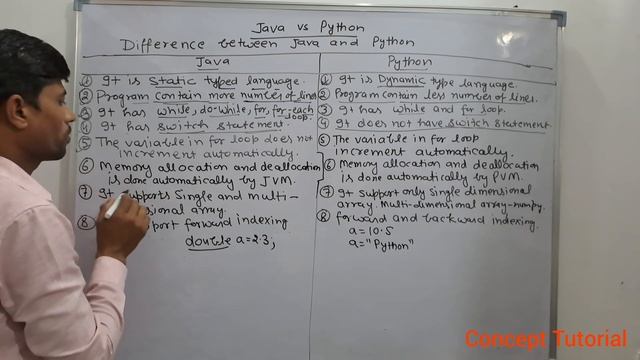 Java vs Python
Difference between Java and Python
Java
① It is Static typed language.
② Program contain more number of lines.
③ It has while, do-while, for, for-each
loop.
④ It has switch statement.
⑤ The variable in for loop does not
increment automatically.
⑥ Memory allocation and deallocation
is done automatically by JVM.
⑦ It supports Single and multi-
sional array.
⑧ port forward indexing
double a=2.3;
Python
① It is Dynamic type language.
② Program contain less number of lines.
③ It has while and for loop.
④ It does not have switch statement.
⑤ The variable in for loop
increment automatically.
⑥ Memory allocation and deallocation
is done automatically by PVM.
⑦ It support only single dimensional
array. Multi-dimensional array-numpy.
⑧ forward and backward indexing.
a=10.5
a="Python"
Concept Tutorial